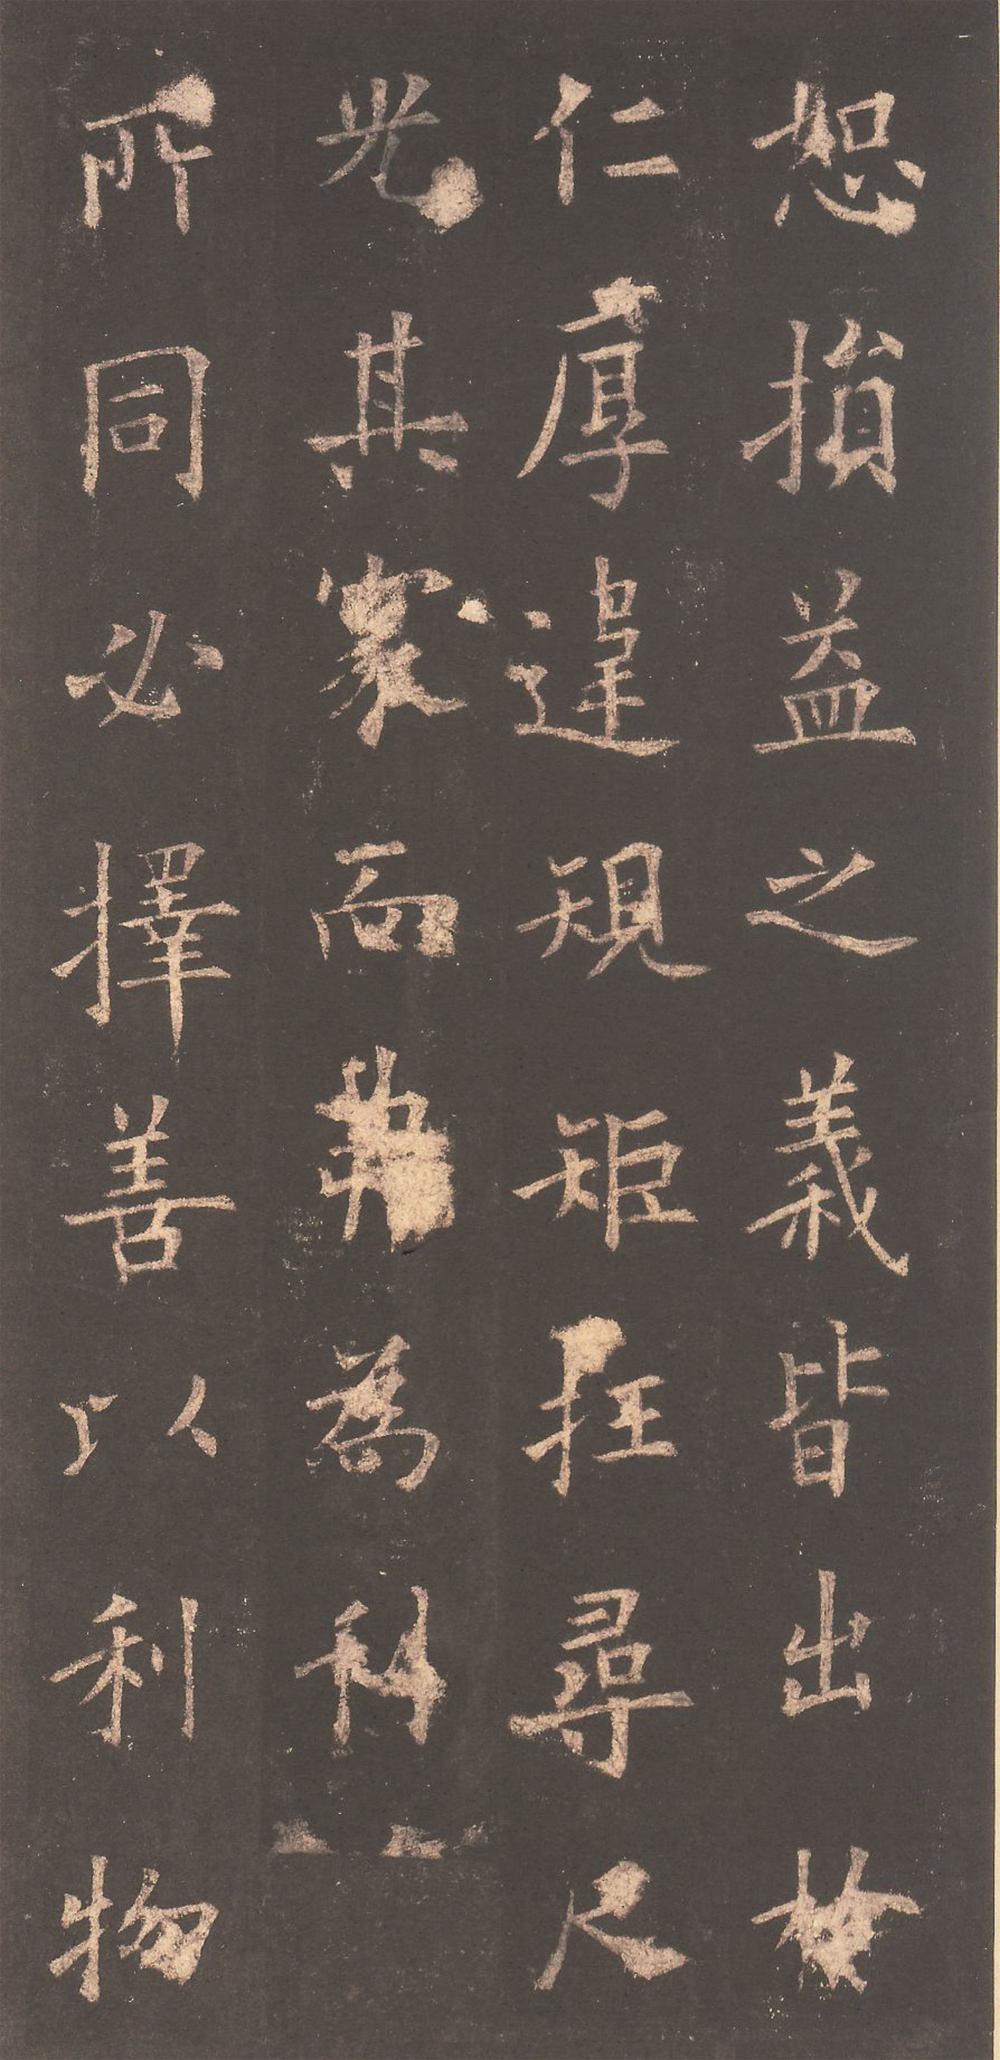 恕損益之義皆出於
仁厚違規矩狂尋尺
光其家而為科
所同必擇善以利物